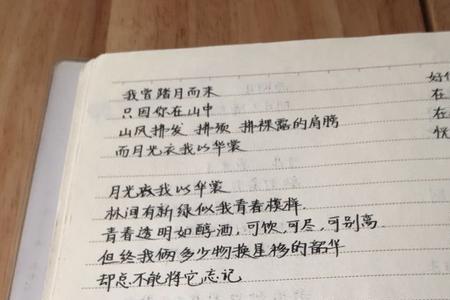 我曾踏月而来
只因你在山中
山风拼发 拼颈 拼裸露的肩膀
而月光衣我以华裳
月光衣我以华裳
林间有新绿似我青春模样
青春透明如醇酒,可饮,可尽,可别离
但终我俩多少物换星移的韶华
却总不能将它忘记
好
在
在